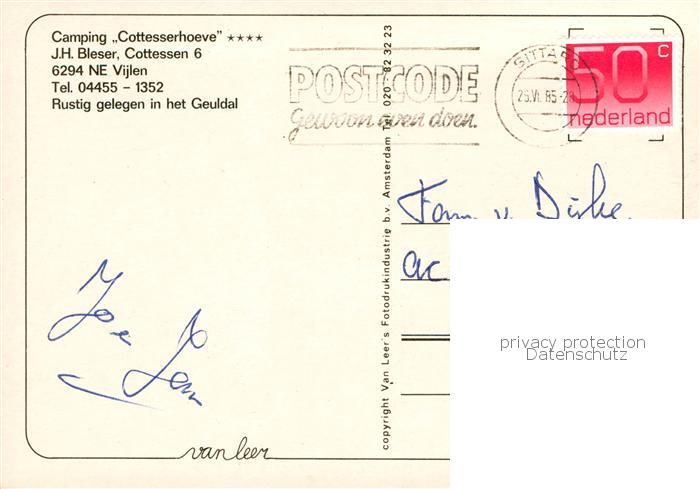 Camping „Cottesserhoeve" ****
J.H. Bleser, Cottessen 6
6294 NE Vijlen
Tel. 04455 - 1352
Rustig gelegen in het Geuldal
POSTCODE
Gewoon even doen.
SITTARD
50 c
nederland
copyright Van Leer's Fotodrukindustrie b.v. Amsterdam Tel. 020 - 82 32 23
Fam v.
van leer
privacy protection
Datenschutz